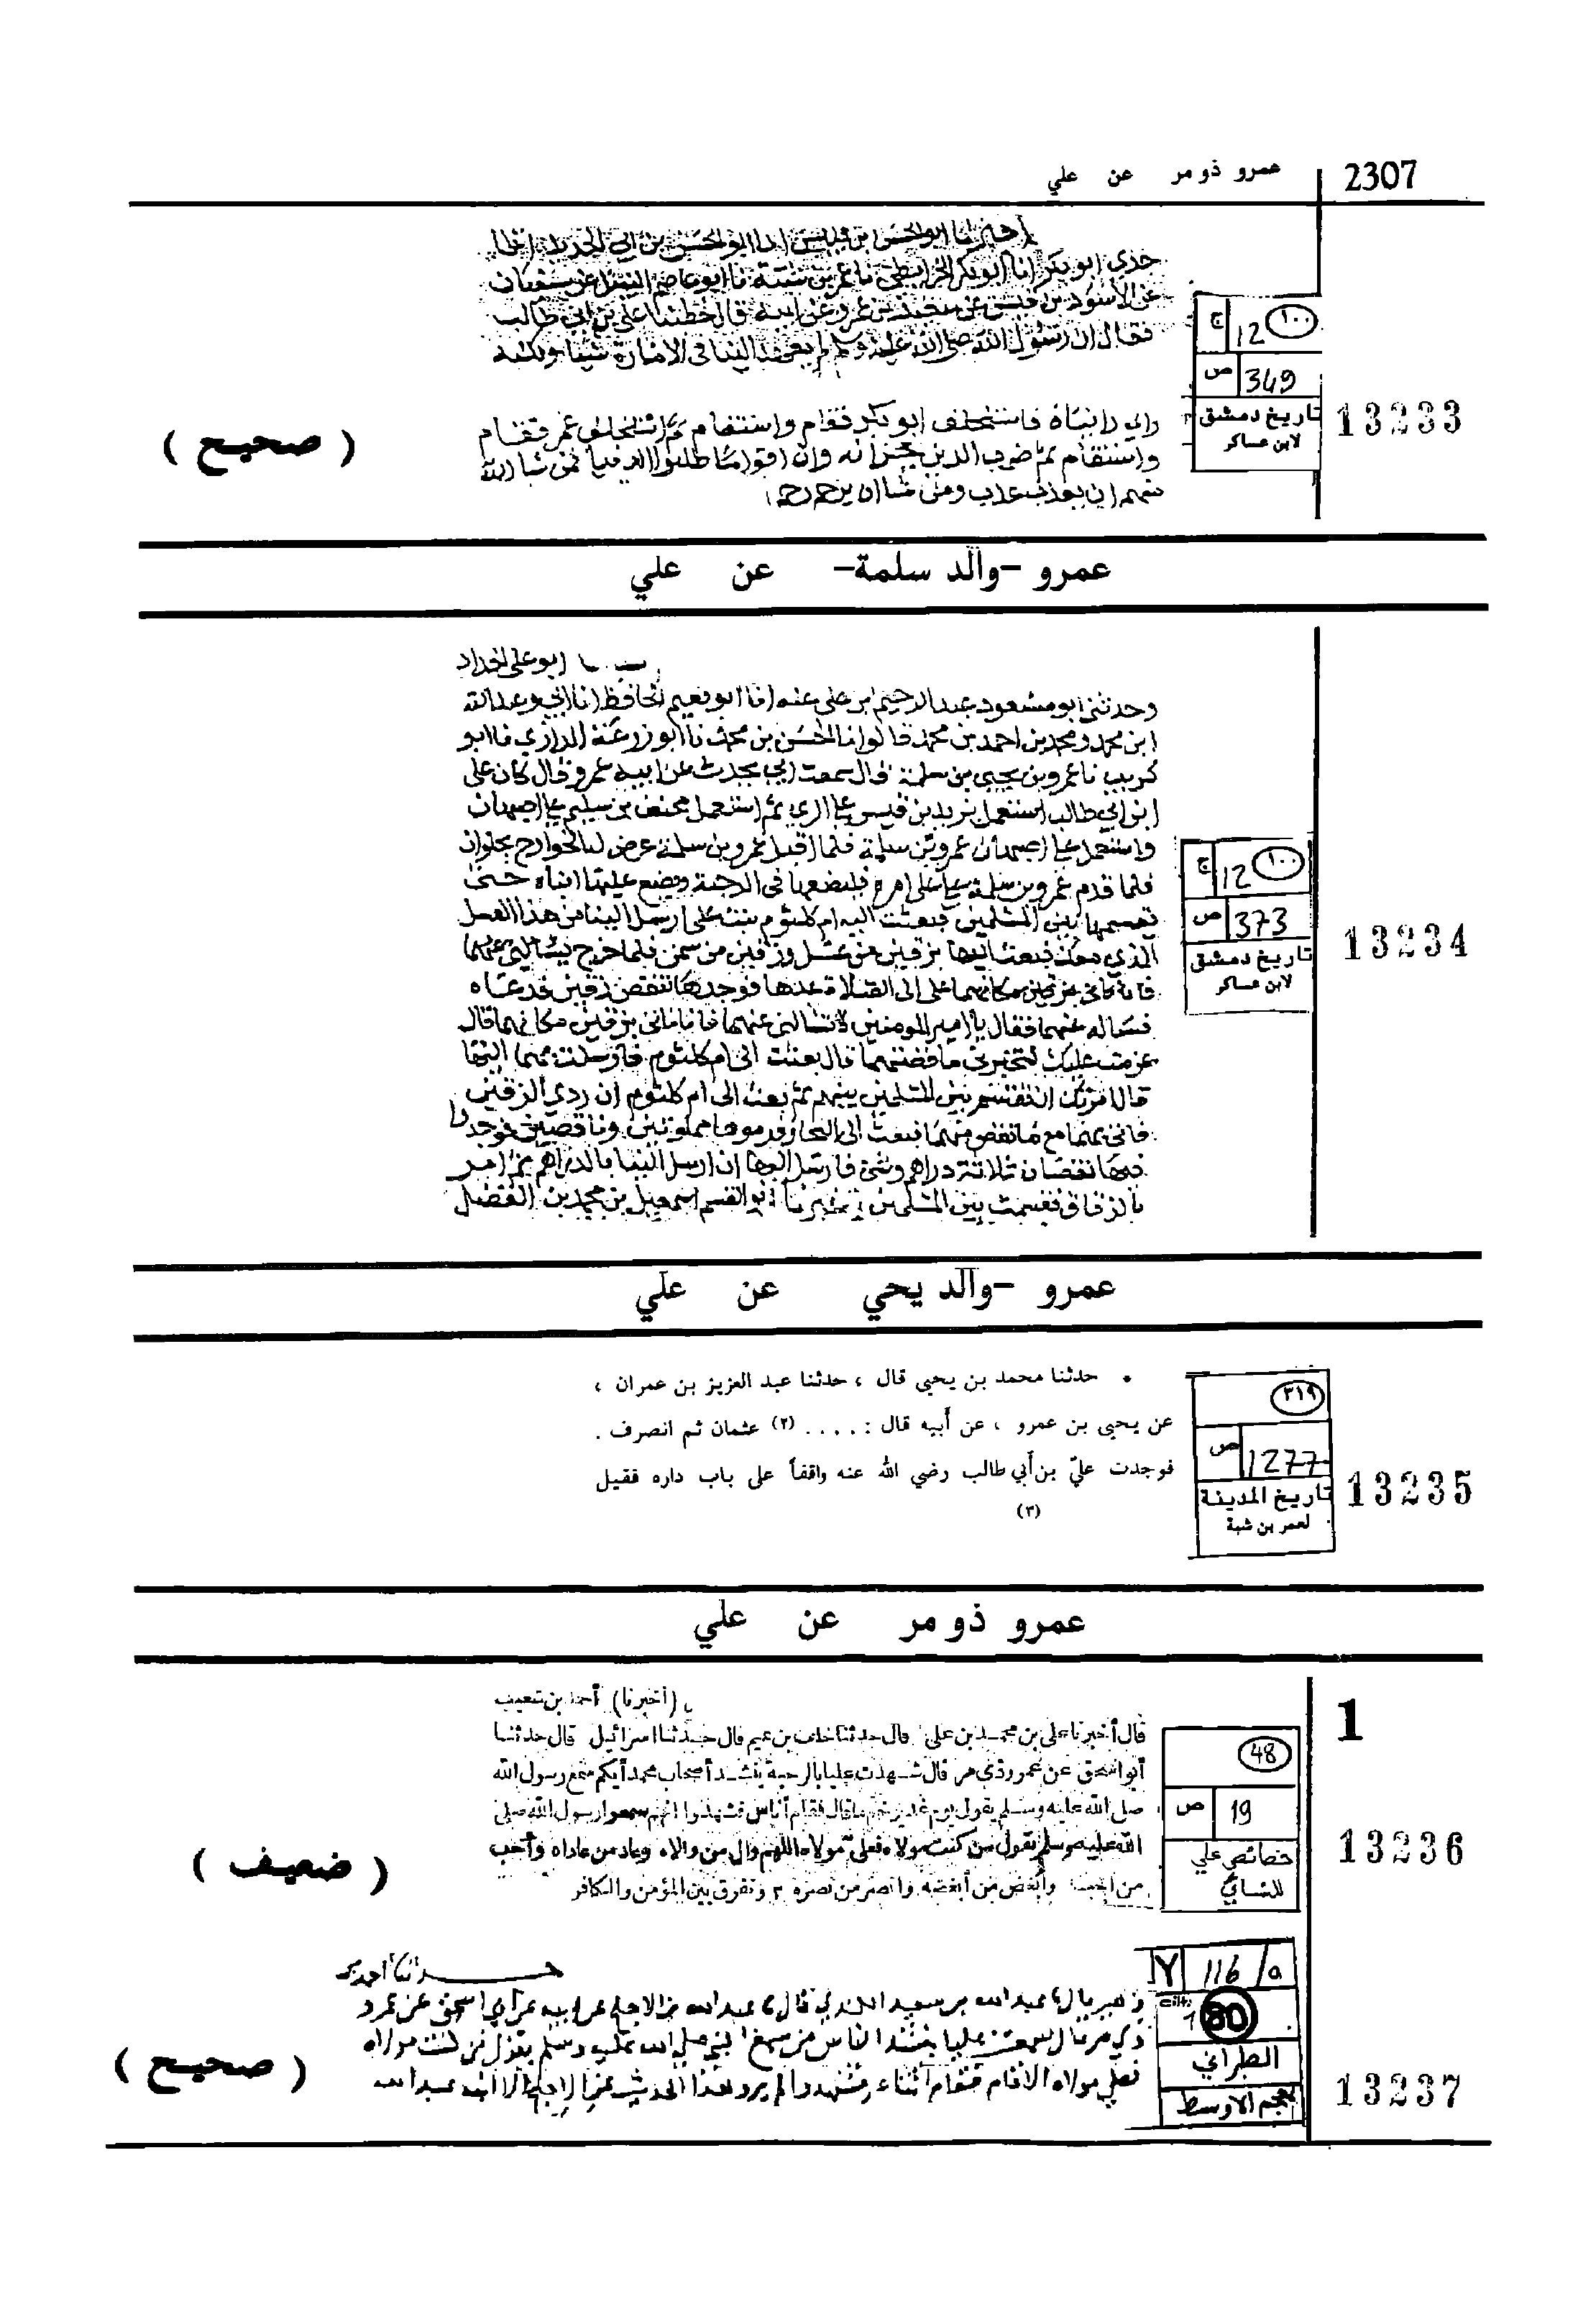 2307
عمرو ذو مر عن علي
اخبرنا ابو الحسن ابن قبيس انا ابو الحسن بن ابي الحديد انا
جدي ابو بكر انا ابو بكر الخرايطي نا عمر بن شبة نا ابو عاصم النبيل عن سفيان
عن الاسود بن قيس عن سعيد بن عمرو عن ابيه قال خطبنا علي بن ابي طالب
فقال ان رسول الله صلى الله عليه وسلم لم يعهد الينا في الامارة شيئا ولكنه
راي رايناه فاستخلف ابو بكر فقام واستقام ثم استخلف عمر فقام
واستقام ثم ضرب الدين بجرانه وان اقواما طلبوا الدنيا فمن شا الله
منهم ان يعذب عذب ومن شا ان يرحم رحم
ج 12 ١٠٠
ص 349
تاريخ دمشق
لابن عساكر
13233
( صحيح )
عمرو -والد سلمة- عن علي
ابو علي الحداد
وحدثني ابو مسعود عبد الرحيم ابن علي عنه انا ابو نعيم الحافظ انا ابي وعبد الله
ابن محمد ومحمد بن احمد بن محمد قالوا نا الحسن بن محمد نا ابو زرعة الرازي نا ابو
كريب نا عمرو بن يحيى بن سلمة قال سمعت ابي يحدث عن ابيه عمرو قال كان علي
ابن ابي طالب استعمل يزيد بن قيس على الري ثم استعمل مخنف بن سليم على اصبهان
واستعمل على اصبهان عمرو بن سلمة فلما اقبل عمرو بن سلمة عرض له الخوارج بحلوان
فلما قدم عمرو بن سلمة على علي امره فليضعها في الرحبة ويضع عليها ابناه حتى
يقسمها بين المسلمين فبعثت اليه ام كلثوم بنت علي ارسل الينا من هذا العسل
الذي معك فبعث اليها بزقين من عسل وزقين من سمن فلما خرج
علي الى الصلاة عدها فوجدها تنقص زقين فدعاه
فساله عنهما فقال يا امير المومنين لا تسالني عنهما فانا ناتي بزقين مكانهما قال
عزمت عليك لتخبرني ما قصتهما قال بعثت الى ام كلثوم فارسلت بهما اليها
قال امرتك ان تقسم بين المسلمين بينهم ثم بعث الى ام كلثوم ان ردي الزقين
فاتى بهما مع ما نقص منهما فبعث الى التجار قوموها مملوتين وناقصين فوجدوا
فيها نقصان ثلاثة دراهم وشي فارسل اليها ان ارسل الينا بالدراهم ثم امر
بالزقاق فقسمت بين المسلمين اخبرنا ابو القسم اسمعيل بن محمد بن الفضل
ج 12 ١٠٠
ص 373
تاريخ دمشق
لابن عساكر
13234
عمرو -والد يحي عن علي
* حدثنا محمد بن يحيى قال ، حدثنا عبد العزيز بن عمران ،
عن يحيى بن عمرو ، عن أبيه قال : .... (٢) عثمان ثم انصرف .
فوجدت عليّ بن أبي طالب رضي الله عنه واقفاً على باب داره فقيل
(٣)
٣١٩
ص 1277
تاريخ المدينة
لعمر بن شبة
13235
عمرو ذو مر عن علي
1
(أخبرنا) أحمد بن شعيب
قال أخبرنا علي بن محمد بن علي قال حدثنا خلف بن تميم قال حدثنا اسرائيل قال حدثنا
أبو اسحق عن عمرو ذي مر قال شهدت عليا بالرحبة ينشد أصحاب محمد أيكم سمع رسول الله
صلى الله عليه وسلم يقول يوم غدير خم ما قال فقام أناس فشهدوا انهم سمعوا رسول الله صلى
الله عليه وسلم يقول من كنت مولاه فعلي مولاه اللهم وال من والاه وعاد من عاداه وأحب
من أحبه وأبغض من أبغضه وانصر من نصره ٢ وتفرق بين المؤمن والكافر
48
ص 19
خصائص علي
للنسائي
13236
( ضعيف )
حدثنا أحمد بن
زهير قال نا عبد الله بن سعيد الكندي قال نا عبد الله بن الاجلح عن ابيه عن ابي اسحق عن عمرو
ذي مر قال سمعت عليا ينشد الناس من سمع النبي صلى الله عليه وسلم يقول من كنت مولاه
فعلي مولاه الا قام فقام اثنا عشر فشهدوا لم يرو هذا الحديث عن الاجلح الا ابنه عبد الله
Y 116/a
cilt: 1 80
الطبراني
معجم الاوسط
13237
( صحيح )